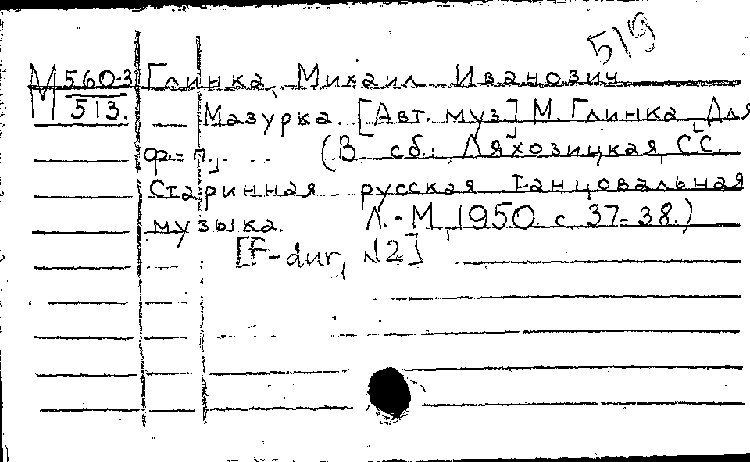 519
М 560-3 Глинка, Михаил Иванович
513. Мазурка. [Авт. муз] М. Глинка [Для
ф.-п.] (В сб.: Ляховицкая, С.С.
Старинная русская танцовальная
музыка. Л.-М., 1950. с. 37-38.)
[F-dur, №2]